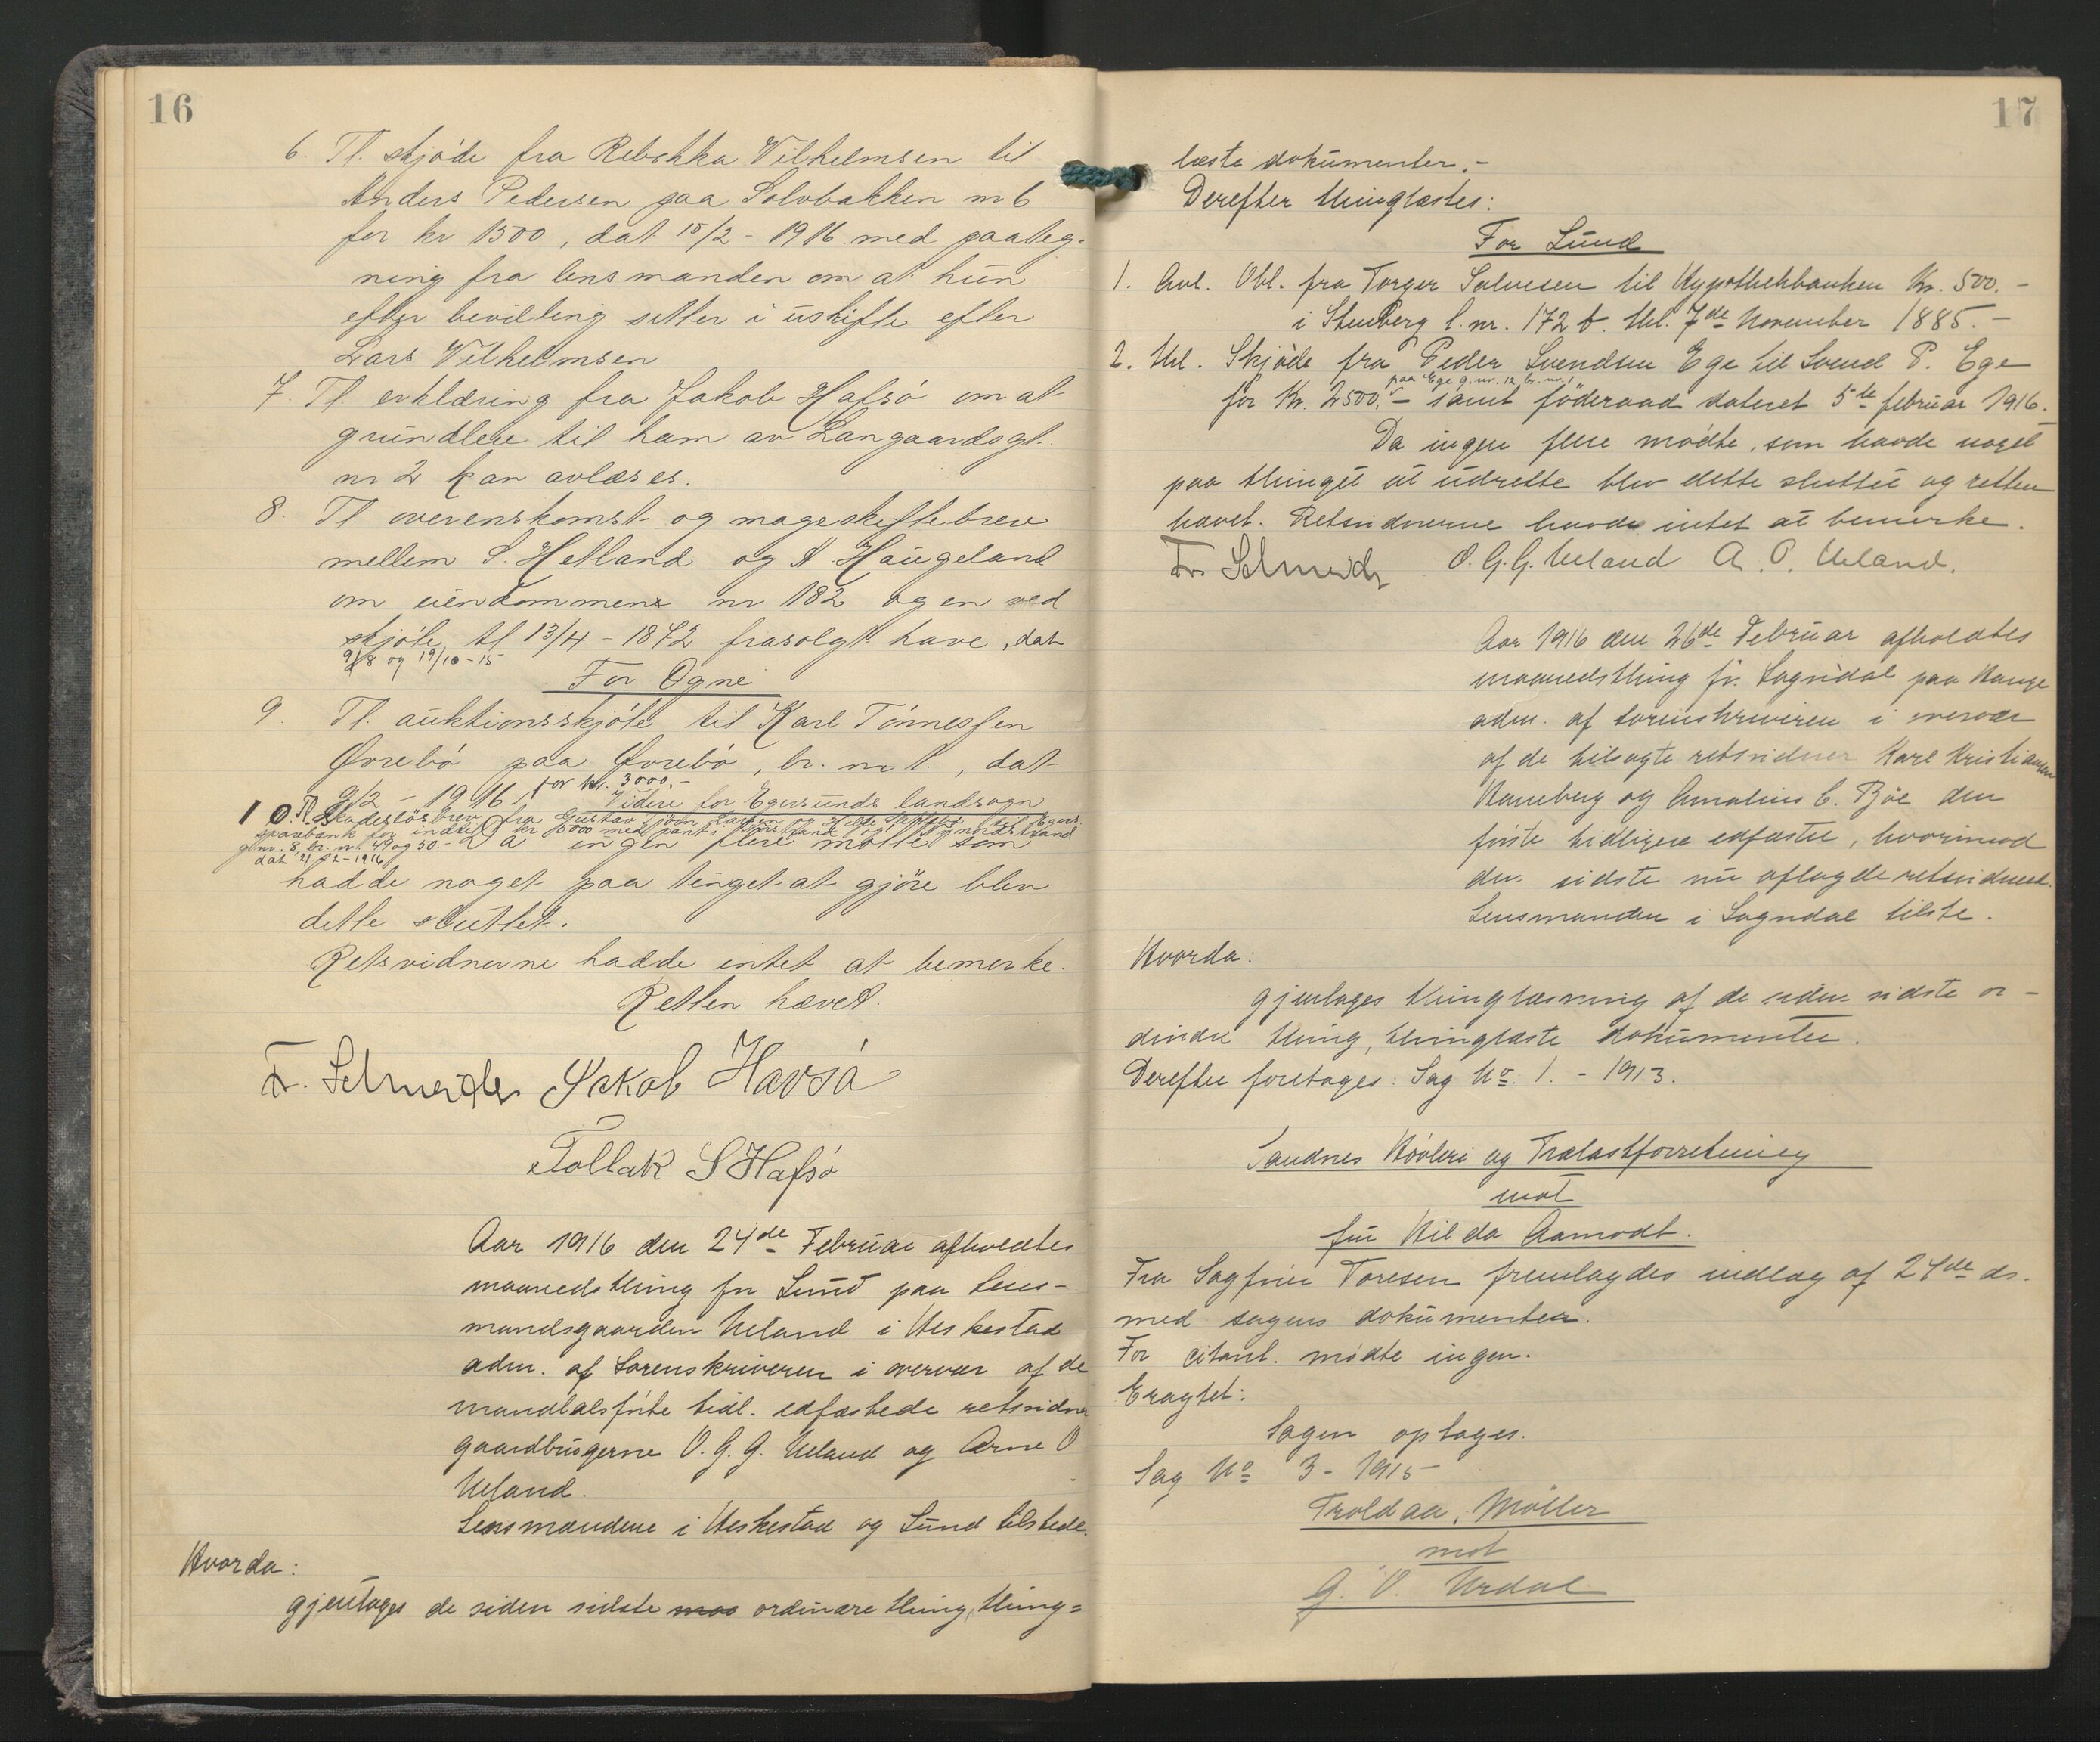 16
6. Tl. skjöde fra Rebekka Vilhelmsen til
Anders Pedersen paa Solvbakken nr 6
for kr 1500, dat 15/2 - 1916. med paateg-
ning fra lensmanden om at hun
efter bevilling sitter i uskifte efter
Lars Vilhelmsen
7. Tl. erklæring fra Jakob Hafsö om at
grundleie til ham av Langaardsgt.
nr 2 kan avlæses.
8. Tl. overenskomst og mageskiftebrev
mellem S. Hetland og A Haugeland
om eiendommene nr 182 og en ved
skjöte tl 13/4 - 1872 frasolgt have, dat
9/8 og 19/10 - 15
For Ogne
9. Tl. auktionsskjöte til Karl Tönnessen
Øvrebö paa Øvrebö, br. nr 1., dat
9/2 - 1916, for kr. 3000.-
Videre for Egersunds landsogn
10. Tl. Skadeslösbrev fra Gustav Johan Larsen og til Egers.
sparebank for indtil kr 6000 med pant i
g.nr. 8, br. nr. 49 og 50.- Da ingen flere mötte som
dat 21/2 - 1916
hadde noget paa tinget at gjöre blev
dette sluttet.
Retsvidnerne hadde intet at bemerke.
Retten hævet.
Fr. Schneider Jakob Havsö
Tollak S Hafsö
Aar 1916 den 24de Februar afholdtes
maanedsthing for Lund paa Lens-
mandsgaarden Ueland i Heskestad
adm. af Sorenskriveren i overvær af de
mandtalsförte tidl. edfæstede retsvidner
gaardbrugerne O. G. G. Ueland og Arne O
Ueland.
Lensmændene i Heskestad og Lund tilstede.
Hvorda:
gjentages de siden sidste maa ordinære thing, thing=
17
læste dokumenter.-
Derefter thinglæstes:
For Lund
1. Avl. Obl. fra Torger Salvesen til Hypothekbanken Kr. 500.-
i Stenberg l.nr. 172 b. thl. 7de November 1885.-
2. Thl. Skjöde fra Peder Svendsen Ege til Svend P. Ege
paa Ege g.nr. 12, br.nr. 1
for Kr. 2500.- samt föderaad dateret 5te februar 1916.
Da ingen flere mödte, som havde noget
paa thinget at udrette blev dette sluttet og retten
hævet. Retsvidnerne havde intet at bemerke.
Fr. Schneider O. G. G. Ueland A. O. Ueland.
Aar 1916 den 26de Februar afholdtes
maanedsthing for Sogndal paa Hauge
adm. af sorenskriveren i overvær
af de tilsagte retsvidner Karl Kristiansen
Haneberg og Amalius C. Böe den
förste tidligere edfæstet, hvorimod
den sidste nu aflagde retsvidneed.
Lensmanden i Sogndal tilste.
Hvorda:
gjentages thinglæsning af de siden sidste or-
dinære thing, thinglæste dokumenter.
Derefter foretages: Sag No. 1. - 1913.
Sandnes Hövleri og Trælastforretning
mot
fru Hilda Aamodt.
Fra Sagförer Toresen fremlagdes indlæg af 24de ds.
med sagens dokumenter.
For citant. mödte ingen.
Eragtet:
Sagen optages.
Sag No 3 - 1915
Troldaa, Möller
mot
G. O. Urdal